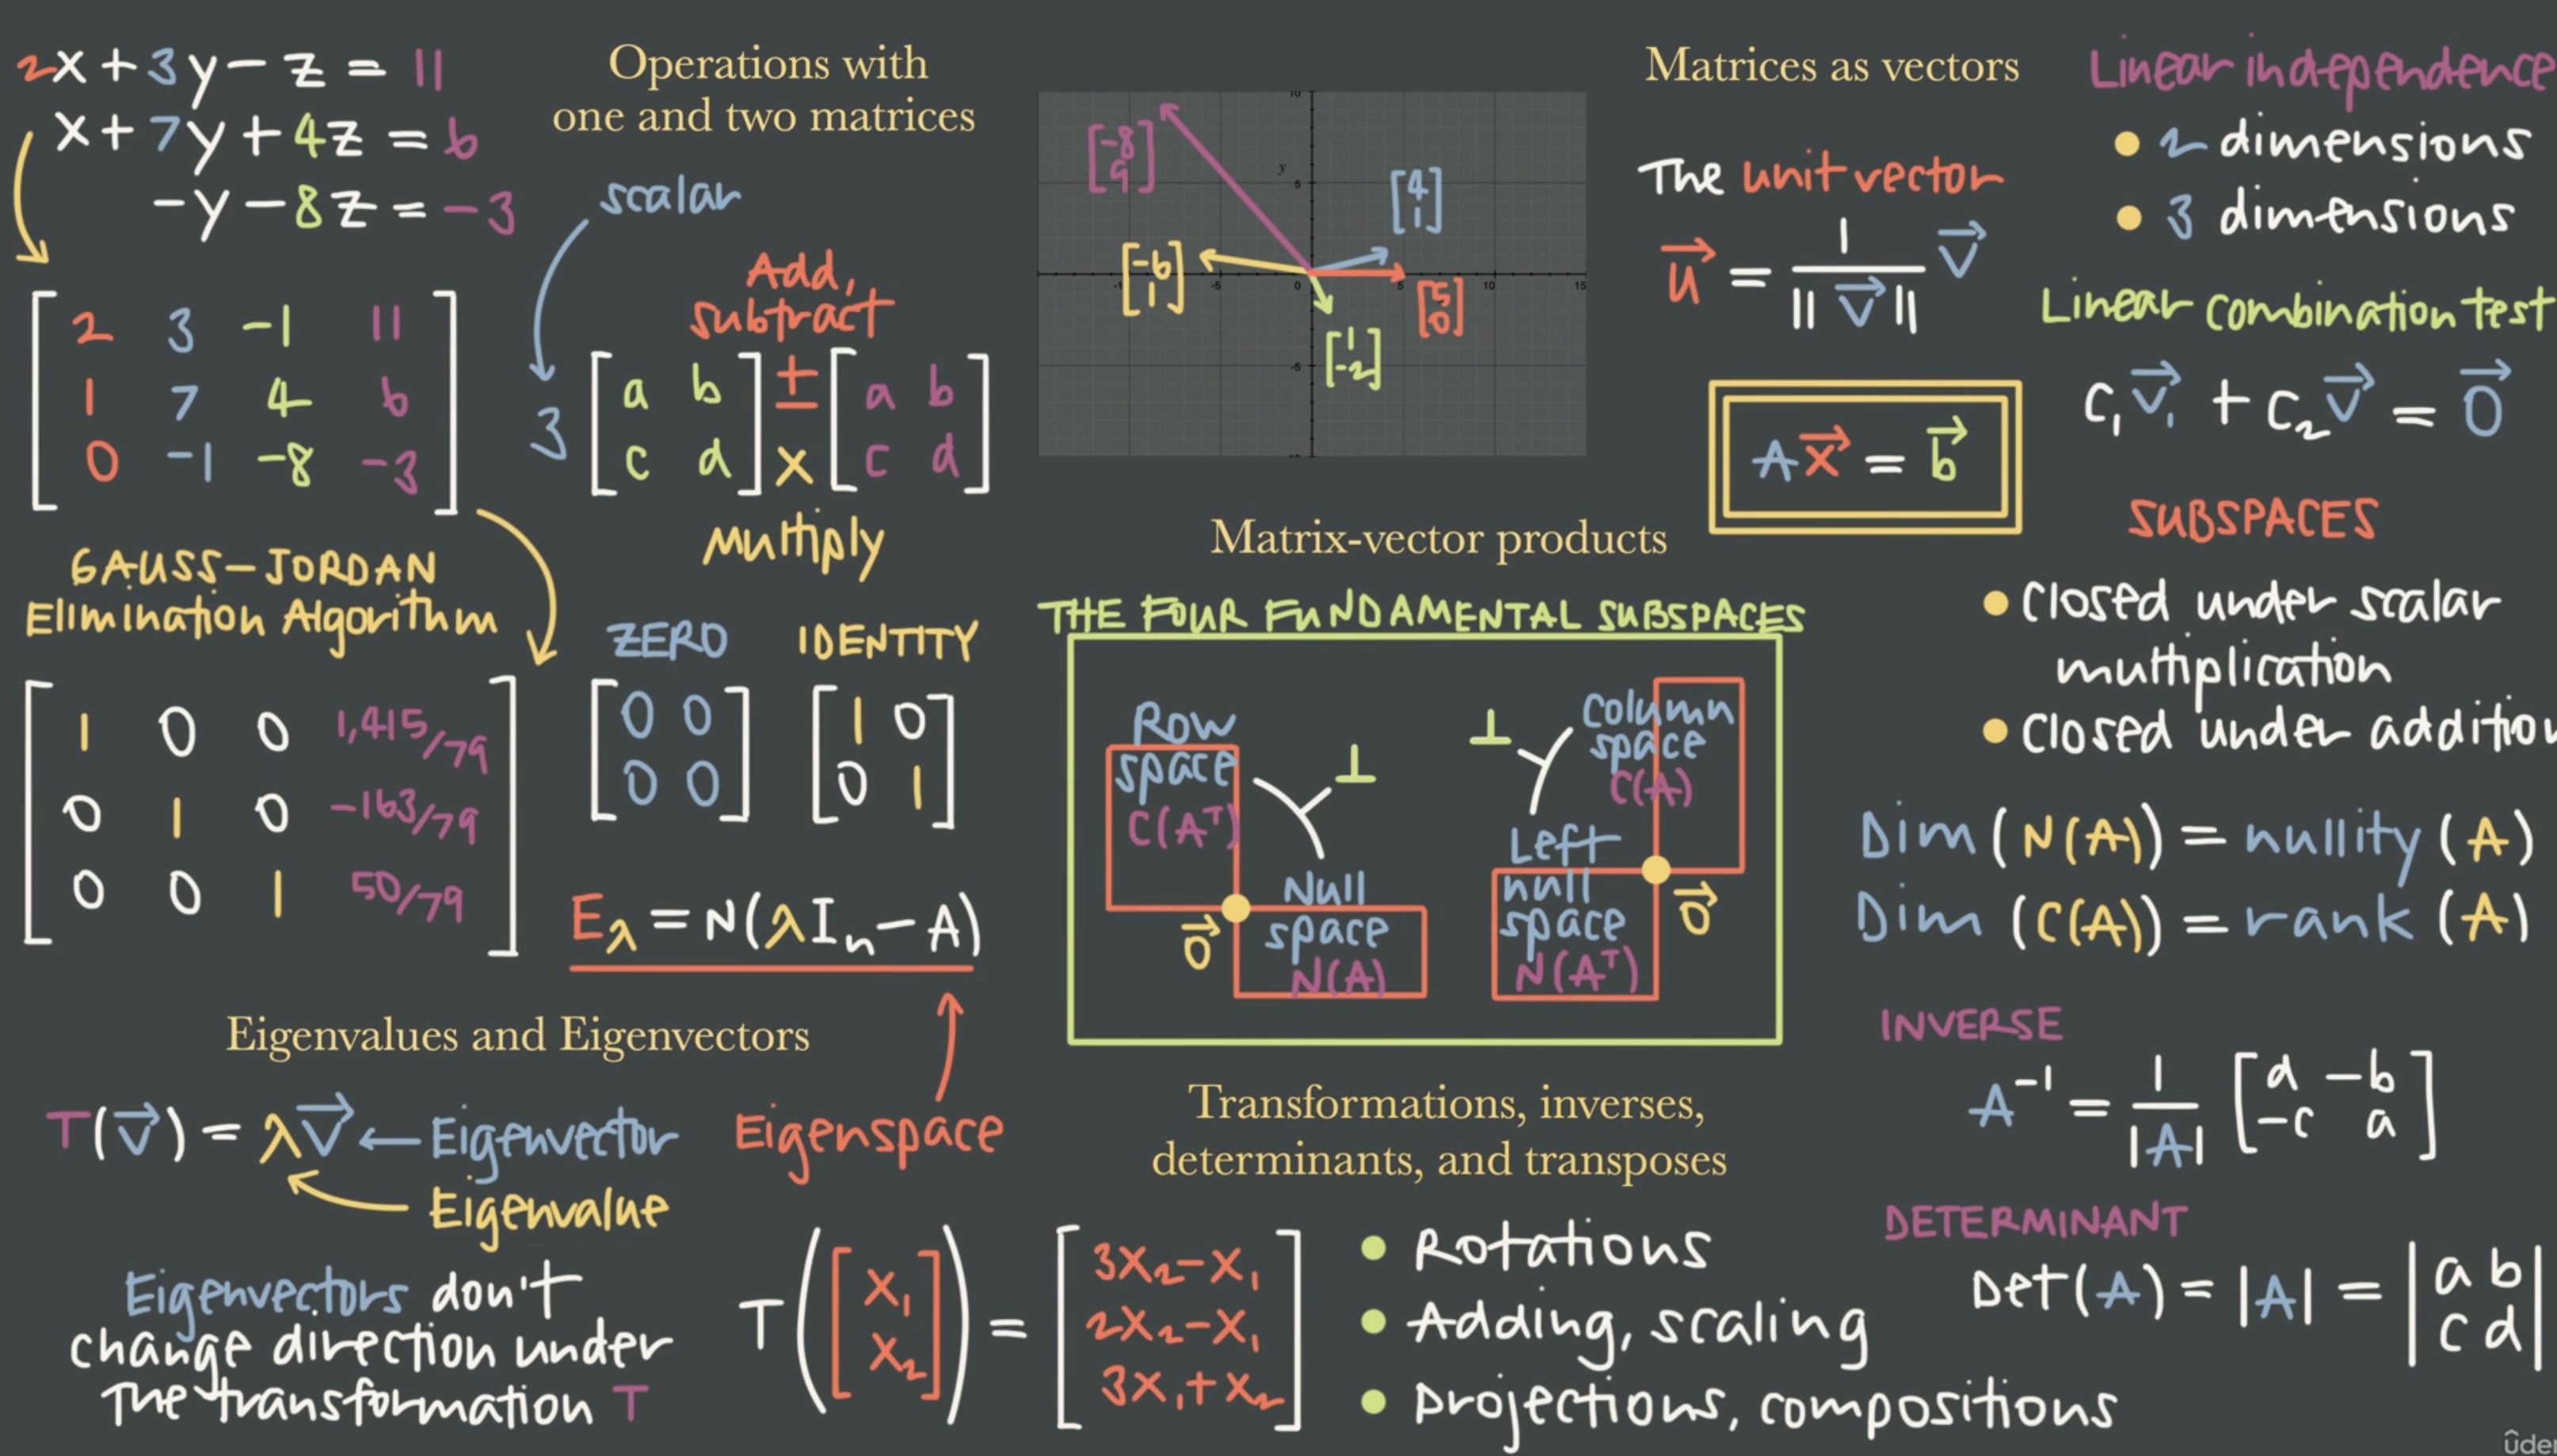 2x + 3y - z = 11
x + 7y + 4z = 6
-y - 8z = -3
2 3 -1 11
1 7 4 6
0 -1 -8 -3
GAUSS-JORDAN
Elimination Algorithm
1 0 0 1,415/79
0 1 0 -163/79
0 0 1 50/79
Operations with
one and two matrices
scalar
Add,
subtract
3 [a b] ± [a b]
[c d] x [c d]
Multiply
ZERO IDENTITY
0 0 1 0
0 0 0 1
Eλ = N(λIn - A)
Eigenspace
Eigenvalues and Eigenvectors
T(v⃗) = λv⃗ ← Eigenvector
Eigenvalue
Eigenvectors don't
change direction under
the transformation T
10
y
5
-5
0
5
10
15
-5
[-8
9]
[4
1]
[-6
1]
[5
0]
[1
-2]
Matrices as vectors
The unit vector
u⃗ = 1/||v⃗|| v⃗
Ax⃗ = b⃗
Matrix-vector products
THE FOUR FUNDAMENTAL SUBSPACES
Row
space
C(Aᵀ)
⊥
Null
space
N(A)
0⃗
⊥
Column
space
C(A)
Left
null
space
N(Aᵀ)
0⃗
Transformations, inverses,
determinants, and transposes
T([x₁
x₂]) =
3x₂ - x₁
2x₂ - x₁
3x₁ + x₂
Rotations
Adding, scaling
projections, compositions
Linear independence
2 dimensions
3 dimensions
Linear combination test
c₁v⃗₁ + c₂v⃗ = 0⃗
SUBSPACES
closed under scalar
multiplication
closed under additio
Dim(N(A)) = nullity(A)
Dim(C(A)) = rank(A)
INVERSE
A⁻¹ = 1/|A| [d -b
-c a]
DETERMINANT
Det(A) = |A| = |a b
c d|
ûde